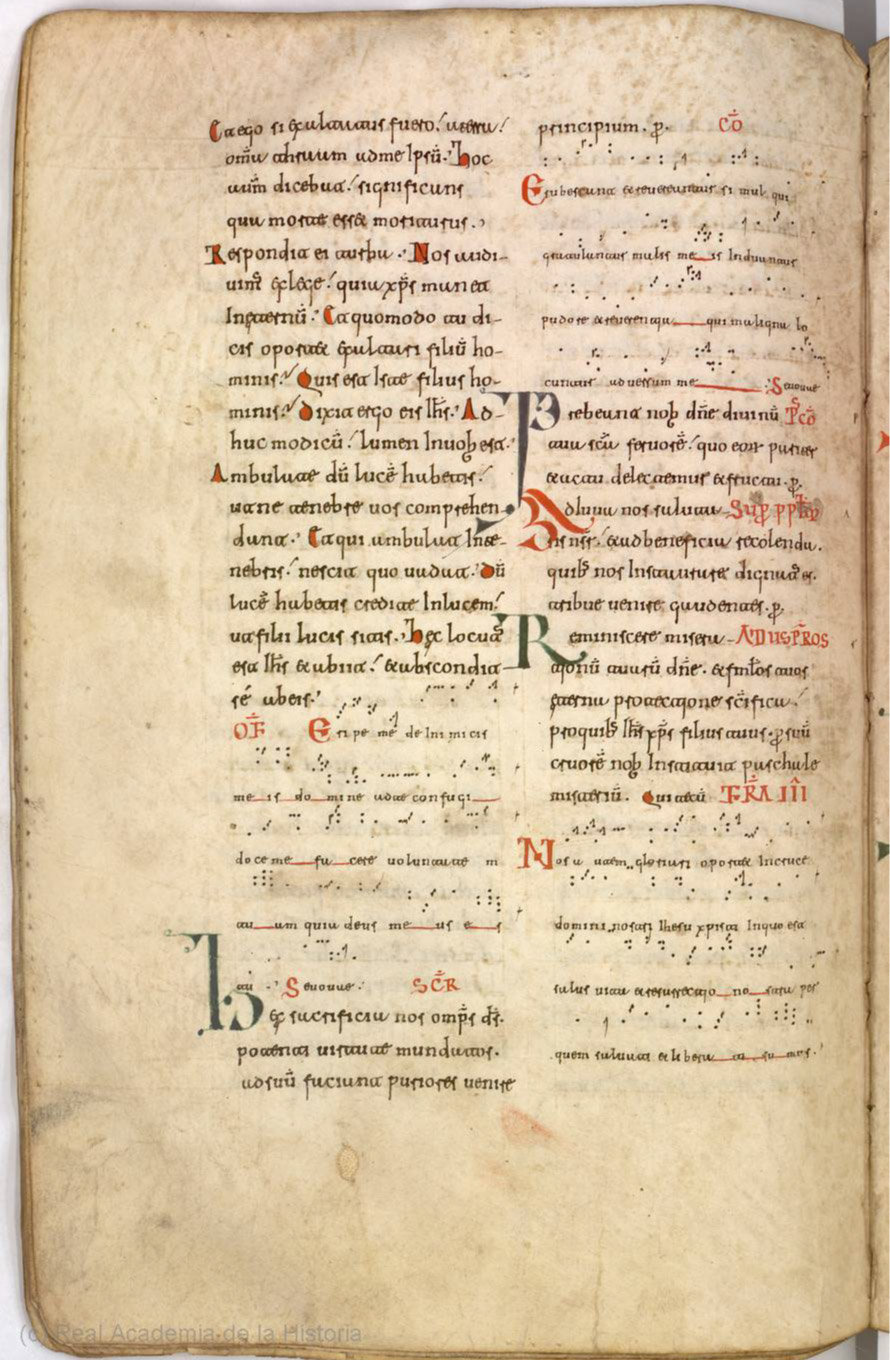 Et ego si exaltatus fuero a terra
om̄a traham ad me Ipsū. Hoc
autm̄ dicebat significans
qua morte esset moriturus.
Respondit ei turba. Nos audi-
uim̄ ex lege quia xp̄s manet
In eternū. Et quomodo tu di-
cis oportet exaltari filiū ho-
minis. Quis est Iste filius ho-
minis. Dixit ergo eis Ih̄s. Ad-
huc modicū lumen In uob est.
Ambulate dū lucē habetis
ut ne tenebre uos comprehen-
dant. Et qui ambulat In te-
nebris nescit quo uadat. Dū
lucē habetis credite In lucem
ut filii lucis sitis. Hec locutus
est Ih̄s et abiit et abscondit
sē ab eis.
OF Eripe me de Inimicis
me is do mine ad te confugi
doce me fa cere uoluntate m
tu am quia deus me us e s
tu . Seuouae. SCR
Hec sacrificia nos omp̄s ds̄.
potenti uirtute mundatos.
ad suū faciant puriores uenire
principium. p. CŌ
Erubescant et reuereantur si mul qui
gratulantur malis me is Induantur
pudore et reuerentia qui maligna lo
cuntur aduersum me Seuouae
Prebeant nob dn̄e diuinū PCŌ
tui scā feruorē. quo eor pariter
et actu delectemur et fructu. p.
Adiuua nos salutaris SUP PPLM
nr̄ nr̄. et ad beneficia recolenda.
quib nos Instaurare dignatus es.
tribue uenire gaudentes. p.
Reminiscere misera AD UESPROS
tionū tuarū dn̄e. et famlos tuos
eterna protectione sc̄ifica.
pro quib Ih̄s xp̄s filius tuus. p suū
cruorē nob Instituit paschale
misteriū. Qui tecū FRA III
Nos autem gloriari oportet In cruce
domini nostri Ihesu xpisti In quo est
salus uita et resurrectio no stra per
quem saluati et libera ti su mus.
(c) Real Academia de la Historia